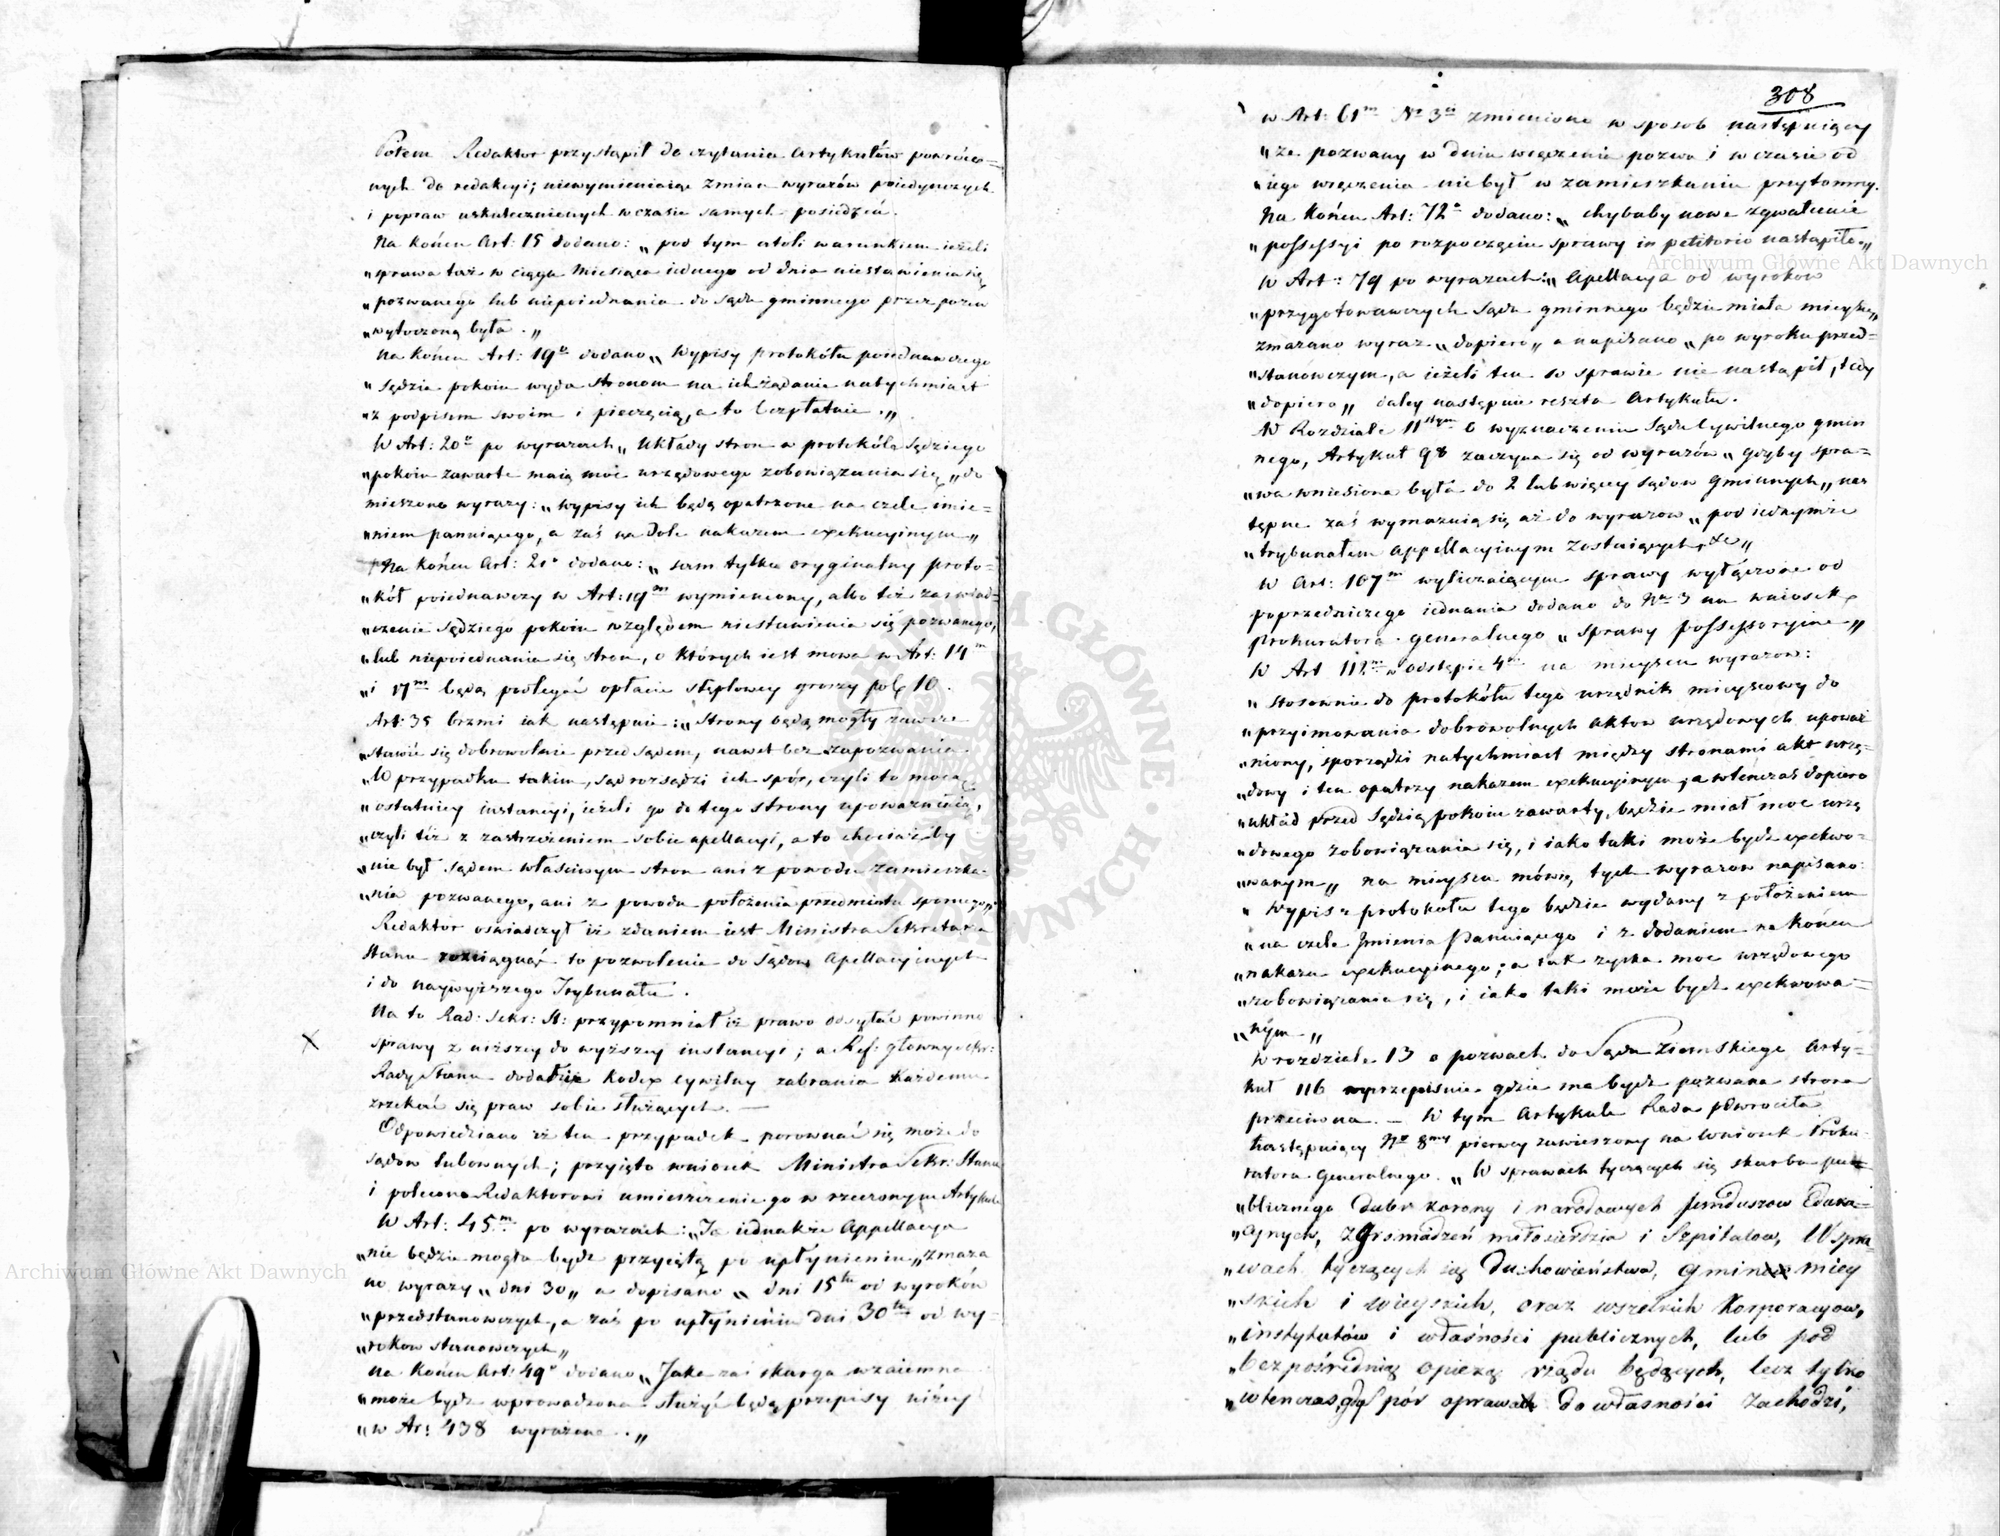 Potem Redaktor przystąpił do czytania Artykułów powróco=
nych do redakcyi; niewymieniaiąc zmian wyrazów poiedynczych
i popraw uskutecznionych w czasie samych posiedzeń.
Na końcu Art: 15 dodano: „ pod tym atoli warunkiem ieżeli
„sprawa taż w ciągu Miesiąca iednego od dnia niestawienia się
„pozwanego lub niepoiednania do sądu gminnego przez pozew
„wytoczoną była . „
Na końcu Art: 19º dodano „ Wypisy protokółu poiednawczego
„ Sędzia pokoiu wyda stronom na ich żądanie natychmiast
„z podpisem swoim i pieczęcią, a to bezpłatnie . „
W Art: 20º po wyrazach „ Układy stron w protokóle Sędziego
„pokoiu zawarte maią moc urzędowego zobowiązania się „ do
mieszono wyrazy: „ wypisy ich będą opatrzone na czele imie=
„niem panuiącego, a zaś na dole nakazem exekucyinym „
Na końcu Art: 21º dodano: „ sam tylko oryginalny proto=
„kół poiednawczy w Art: 19m wymieniony, albo też zaświad=
„czenie Sędziego pokoiu względem niestawienia się pozwanego,
„lub niepoiednania się stron, o których iest mowa w Art: 14m
„i 17m będą podlegać opłacie stęplowey groszy pol: 10.
Art: 35 brzmi iak następuie: „ Strony będą mogły zawsze
„stawić się dobrowolnie przed sądem, nawet bez zapozwania.
„W przypadku takim, sąd rozsądzi ich spór, czyli to mocą
„ostatniey instancyi, ieżeli go do tego strony upoważnią,
„czyli też z zastrzeżeniem sobie apellacyi, a to chociażby
„nie był sądem właściwym stron ani z powodu zamieszka-
„nia pozwanego, ani z powodu położenia przedmiotu spornego „
Redaktor oświadczył iż zdaniem iest Ministra Sekretarza
Stanu rozciągnąć to pozwolenie do Sądów Apellacyinych
i do naywyższego Trybunału .
Na to Rad: Sekr: St: przypomniał iż prawo odsyłać powinno
sprawy z niższey do wyższey instancyi; a Ref: główny Sekr:
Rady Stanu dodał iż Kodex Cywilny zabrania każdemu
zrzekać się praw sobie służących. —
Odpowiedziano iż ten przypadek porownać się może do
sądów lubownych; przyięto wniosek Ministra Sekr: Stanu
i polecono Redaktorowi umieszczenie go w rzeczonym Artykule
W Art: 45m po wyrazach: „ Ta iednakże Appellacya
„nie będzie mogła bydź przyiętą po upłynieniu „ zmaza
no wyrazy „ dni 30 „ a dopisano „ dni 15tu od wyroków
„przedstanowczych, a zaś po upłynieniu dni 30tu od wy=
„roków stanowczych „
Na końcu Art: 49º dodano „ Jako zaś skarga wzaiemna
„może bydź wprowadzona służyć będą przepisy niżey
„w Ar: 438 wyrażone . „
308
w Art: 61m Nº 3ci zmieniono w sposob następuiący
„że pozwany w dniu wręczenia pozwu i w czasie od
„iego wręczenia niebył w zamieszkaniu przytomny.
Na końcu Art: 72º dodano: „ chybaby nowe zgwałcenie
„possessyi po rozpoczęciu sprawy in petitorio nastąpiło „
W Art: 79 po wyrazach: „ Apellacya od wyroków
„przygotowawczych Sądu gminnego będzie miała mieysce „
zmazano wyraz „dopiero „ a napisano „ po wyroku przed=
„stanowczym, a ieżeli ten w sprawie nie nastąpił, tedy
„dopiero „ daley następuie reszta Artykułu.
W Rozdziale 11stym O wyznaczeniu Sądu Cywilnego gmin
nego, Artykuł 98 zaczyna się od wyrazów „ gdyby spra=
„wa wniesiona była do 2 lub więcey sądów Gminnych „ nas
tępne zaś wymazuią się aż do wyrazow „ pod iednymże
„trybunałem appellacyinym zostaiących, &c „
W Art: 107m wyliczaiącym sprawy wyłączone od
poprzedniczego iednania dodano do Nru 3 na wniosek
Prokuratora generalnego „ sprawy possessoryine „
W Art 112m w odstępie 4m na mieyscu wyrazow:
„ Stosownie do protokółu tego urzędnik mieyscowy do
„przyimowania dobrowolnych aktow urzędowych upoważ
„niony, sporządzi natychmiast między stronami akt urzę=
„dowy i ten opatrzy nakazem exekucyinym; a wtenczas dopiero
„układ przed Sędzią pokoiu zawarty, będzie miał moc urzę
„dowego zobowiązania się, i iako taki może bydź exekwo=
„wanym „ na mieyscu mówię tych wyrazow napisano:
„ Wypis z protokołu tego będzie wydany z położeniem
„na czele Imienia Panuiącego i z dodaniem na końcu
„nakazu exekucyinego; a tak zyska moc urzędowego
„zobowiązania się, i iako taki może bydź exekwowa=
„nym „
W rozdziale 13 o pozwach do Sądu Ziemskiego Arty=
kuł 116 przepisuie gdzie ma bydź pozwana strona
przeciwna. — W tym Artykule Rada powrociła
następuiący Nr 8my pierwey zawieszony na wniosek Proku-
ratora Generalnego. „ W sprawach tyczących się skarbu pu=
„blicznego dubr korony i narodowych funduszow Eduka=
„cyinych, Zgromadzeń miłosierdzia i Szpitalow, W spra=
„wach tyczących się Duchowieństwa, gmin miey
„skich i wieyskich, oraz wszelkich Korporacyow,
„instytutów i własności publicznych, lub pod
„bezpośrednią opieką rządu będących, lecz tylko
„wtenczas, gdy spór o prawach do własności zachodzi,
Archiwum Główne Akt Dawnych
Archiwum Główne Akt Dawnych